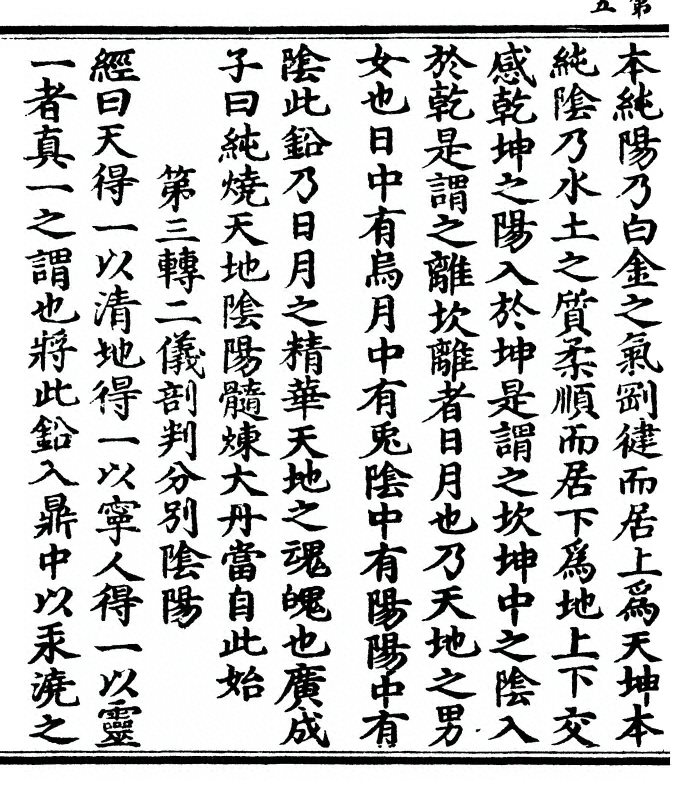 第五
本純陽乃白金之氣剛健而居上爲天坤本
純陰乃水土之質柔順而居下爲地上下交
感乾坤之陽入於坤是謂之坎坤中之陰入
於乾是謂之離坎離者日月也乃天地之男
女也日中有烏月中有兎陰中有陽陽中有
陰此鉛乃日月之精華天地之魂魄也廣成
子曰純燒天地陰陽髓煉大丹當自此始
第三轉二儀剖判分別陰陽
經曰天得一以清地得一以寧人得一以靈
一者真一之謂也將此鉛入鼎中以汞澆之